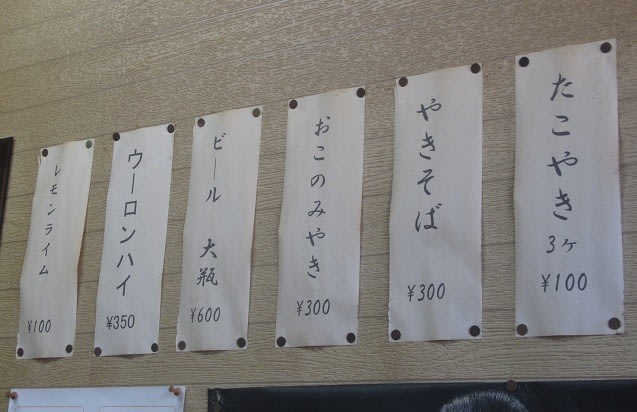 たこやき 3ヶ ¥100
やきそば ¥300
おこのみやき ¥300
ビール 大瓶 ¥600
ウーロンハイ ¥350
レモンライム ¥100